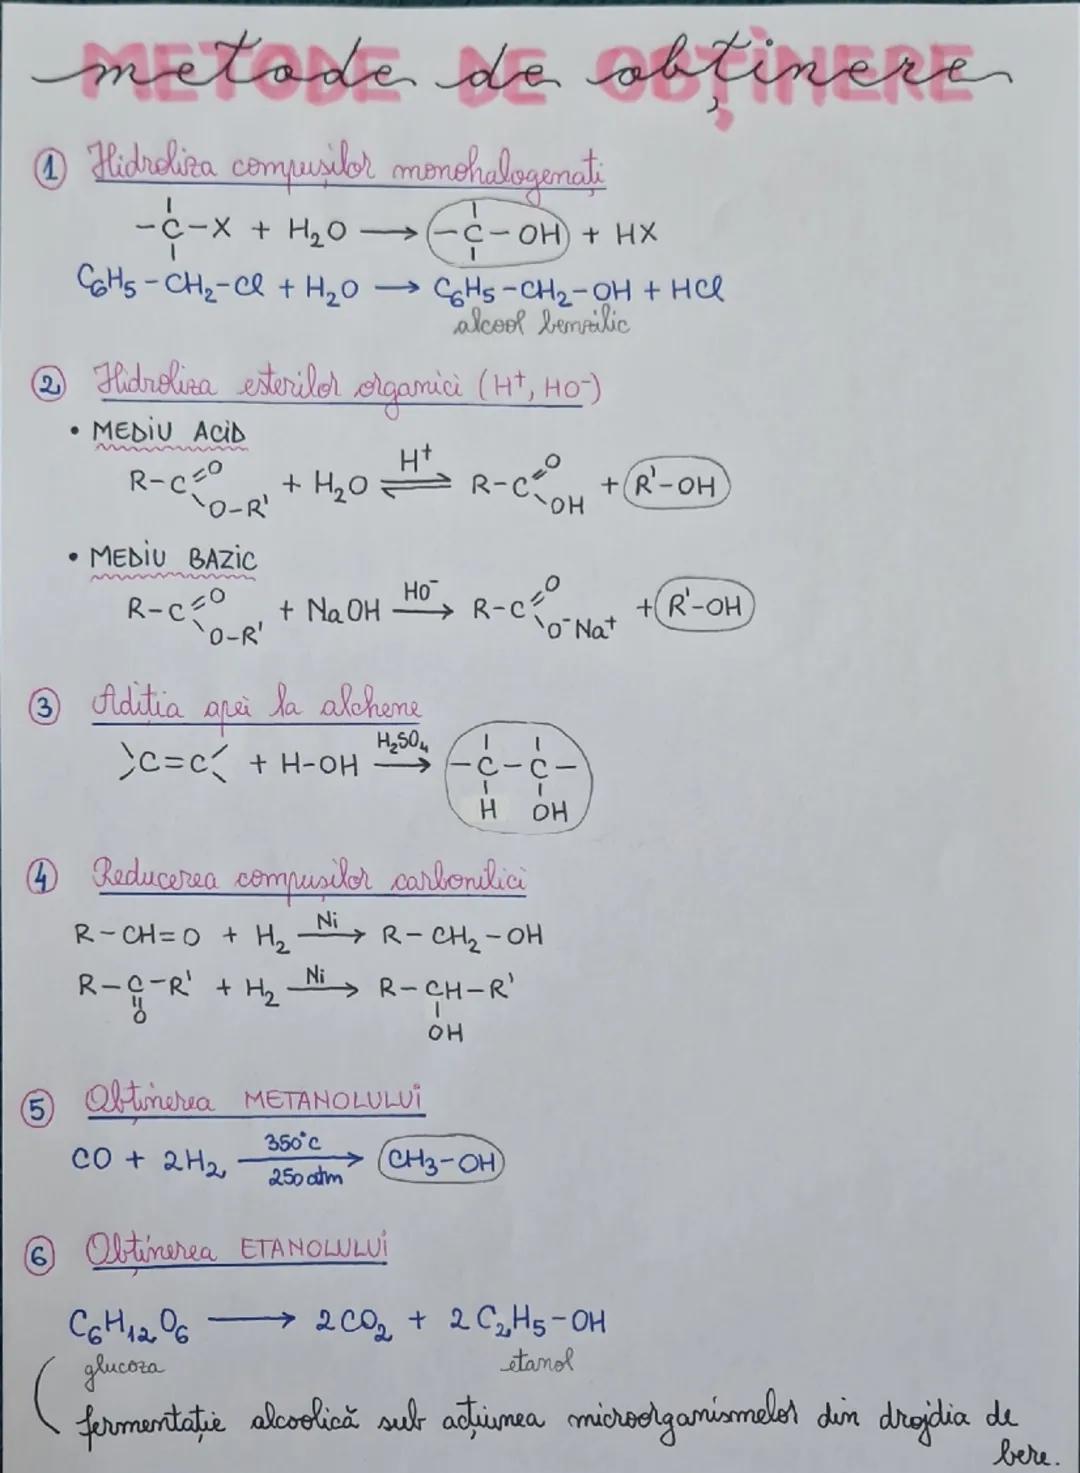 METODE DE OBȚINERE
metode de obținere
① Hidroliza compușilor monohalogenați
-C-X + H₂O → -C-OH + HX
C₆H₅-CH₂-Cl + H₂O → C₆H₅-CH₂-OH + HCl
alcool benzilic
② Hidroliza esterilor organici (H⁺, HO⁻)
• MEDIU ACID
R-C=O O-R' + H₂O ⇌ H⁺ R-C=O OH + R'-OH
• MEDIU BAZIC
R-C=O O-R' + NaOH HO⁻ → R-C=O O⁻Na⁺ + R'-OH
③ Aditia apei la alchene
>C=C< + H-OH H₂SO₄ → -C-C-
H OH
④ Reducerea compușilor carbonilici
R-CH=O + H₂ Ni → R-CH₂-OH
R-C-R' + H₂ Ni → R-CH-R'
O OH
⑤ Obținerea METANOLULUI
CO + 2H₂ 350°C 250 atm → CH₃-OH
⑥ Obținerea ETANOLULUI
C₆H₁₂O₆ → 2CO₂ + 2C₂H₅-OH
glucoza etanol
fermentație alcoolică sub acțiunea microorganismelor din drojdia de
bere.